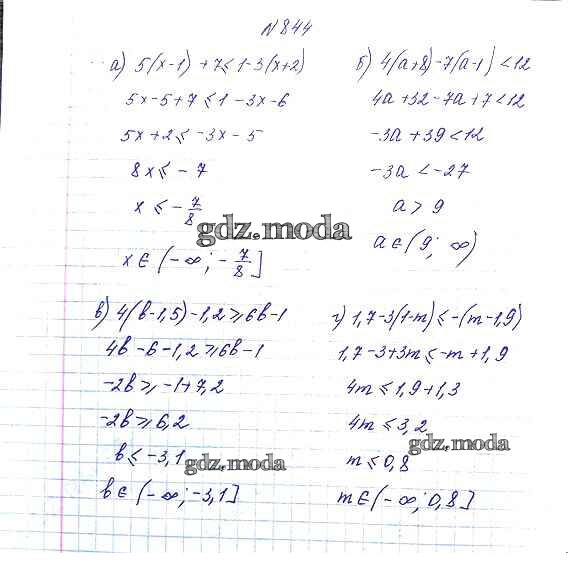 N 844
а) 5(x-1) + 7 ≤ 1-3(x+2)
5x-5+7 ≤ 1-3x-6
5x+2 ≤ -3x-5
8x ≤ -7
x ≤ -7/8
x ∈ (-∞; -7/8]
б) 4(a+8)-7(a-1) < 12
4a+32-7a+7<12
-3a+39<12
-3a < -27
a > 9
a ∈ (9; ∞)
gdz.moda
в) 4(b-1,5)-1,2 ≥ 6b-1
4b-6-1,2 ≥ 6b-1
-2b ≥ -1+7,2
-2b ≥ 6,2
b ≤ -3,1
gdz.moda
b ∈ (-∞; -3,1]
г) 1,7-3(1-m) ≤ -(m-1,9)
1,7-3+3m ≤ -m+1,9
4m ≤ 1,9+1,3
4m ≤ 3,2
gdz.moda
m ≤ 0,8
m ∈ (-∞; 0,8]